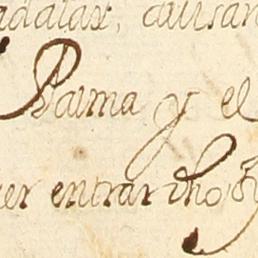 adalax, auisan
Palma y el
er entrar dho